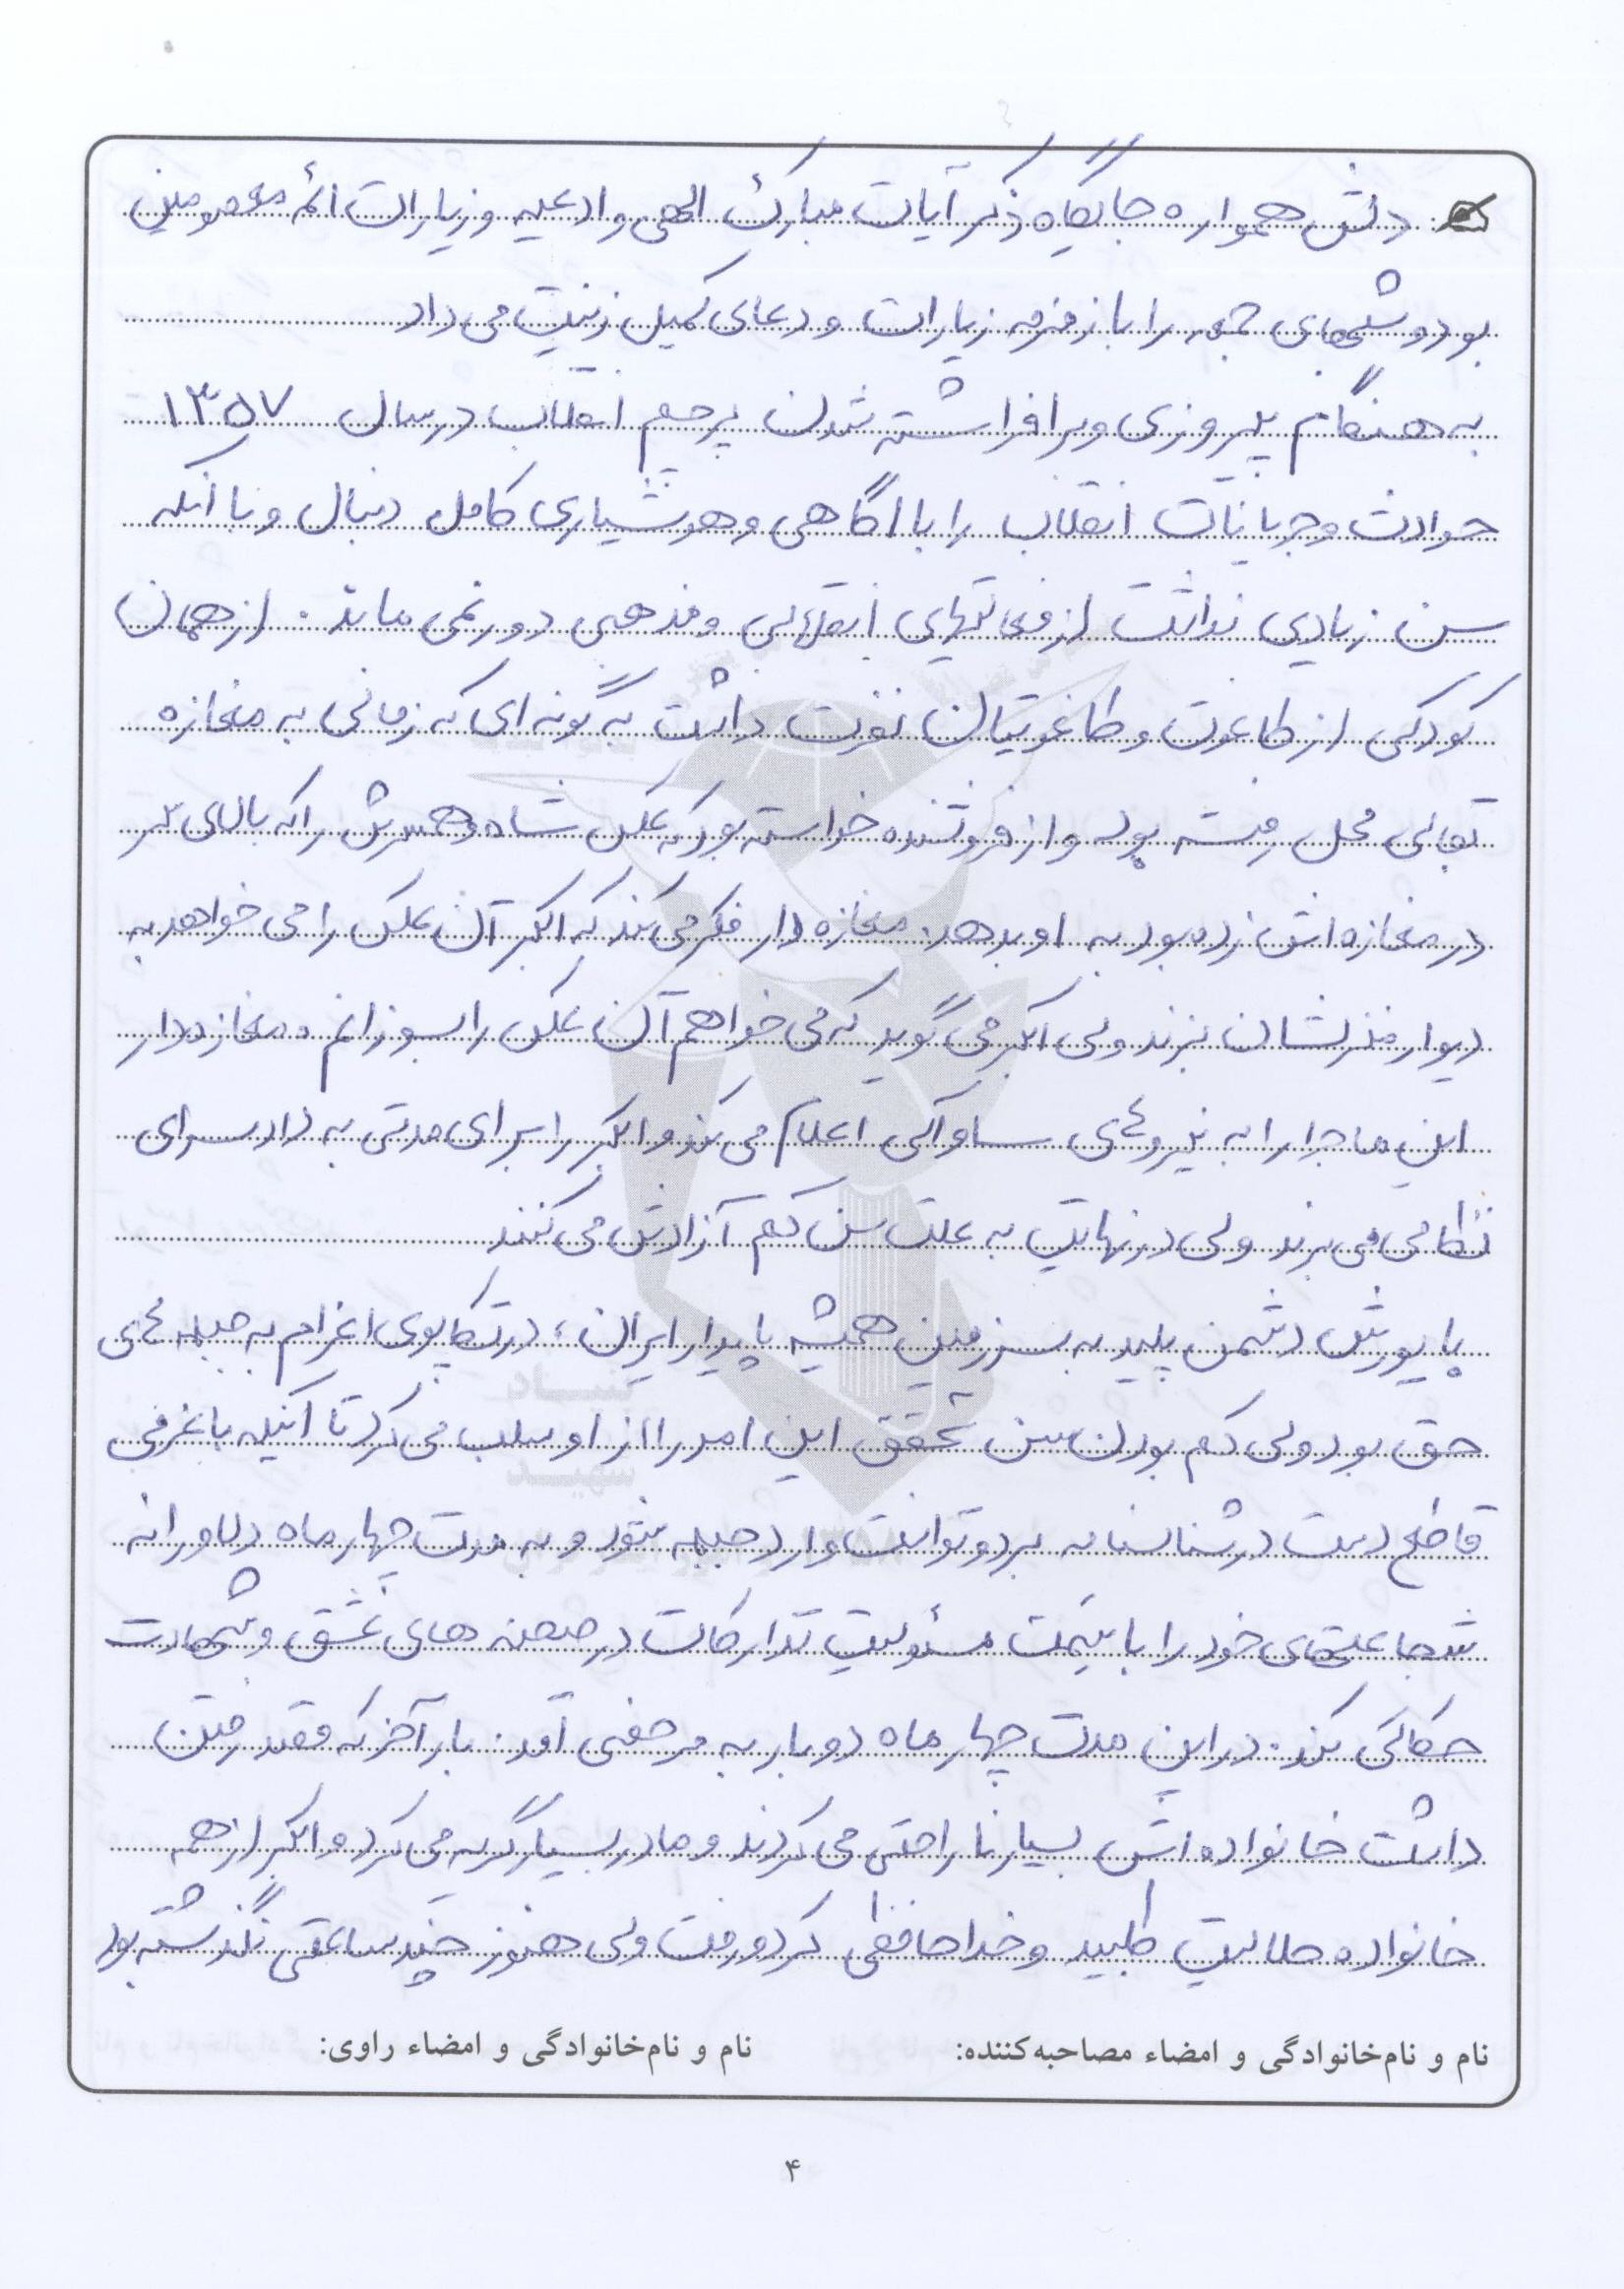 دلش همواره جایگاه ذکر آیات مبارک الهی و ادعیه و زیارات ائمه معصومین
بود و شبهای جمعه را با زمزمه زیارات و دعای کمیل زینت می داد
به هنگام پیروزی و برافراشته شدن پرچم انقلاب در سال ۱۳۵۷
حوادث و جریانات انقلاب را با آگاهی و هوشیاری کامل دنبال و با آنکه
سن زیادی نداشت از فعالیتهای انقلابی و مذهبی دور نمی ماند. از همان
کودکی از طاغوت و طاغوتیان نفرت داشت به گونه ای که زمانی به مغازه
بقالی محل رفته بود و از فروشنده خواسته بود که عکس شاه و همسرش را که بالای سر
در مغازه اش زده بود به او بدهد. مغازه دار فکر می کند که اکبر آن عکس را می خواهد به
دیوار منزلشان بزند ولی اکبر می گوید که می خواهم آن عکس را بسوزانم. مغازه دار
این ماجرا را به نیروهای ساواکی اعلام می کند و اکبر را برای مدتی به دادسرای
نظامی می برند ولی در نهایت به علت سن کم آزادش می کنند
با یورش دشمن پلید به سرزمین همیشه پایدار ایران، در تکاپوی اعزام به جبهه های
حق بود ولی کم بودن سن تحقق این امر را از او سلب می کرد تا اینکه با عزمی
قاطع دست در شناسنامه برد و توانست وارد جبهه شود و به مدت چهار ماه دلاورانه
شجاعتهای خود را با سمت مسئولیت تدارکات در صحنه های عشق و شهادت
حکاکی کند. در این مدت چهار ماه دو بار به مرخصی آمد. بار آخر که قصد رفتن
داشت خانواده اش بسیار ناراحتی می کردند و مادر بسیار گریه می کرد و اکبر از همه
خانواده حلالیت طلبید و خداحافظی کرد و رفت ولی هنوز چند ساعتی نگذشته بود
نام و نام‌خانوادگی و امضاء مصاحبه‌کننده: نام و نام‌خانوادگی و امضاء راوی:
۴